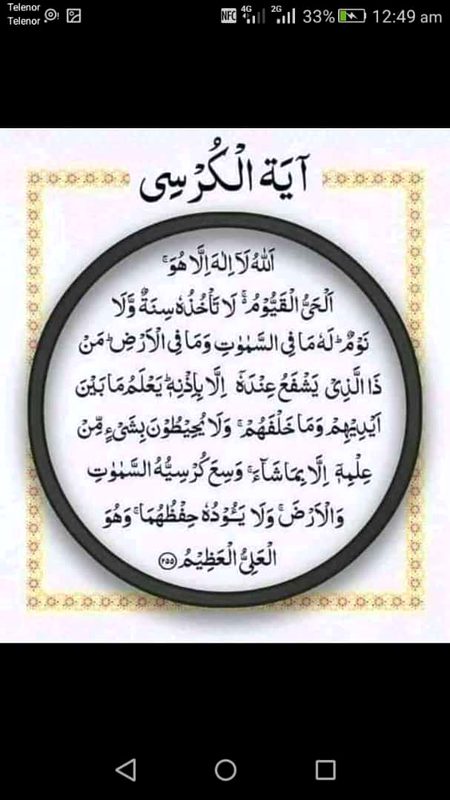 Telenor
Telenor
NFC 4G 2G 33% 12:49 am
آيَة الْكُرْسِى
اَللّٰهُ لَاۤ اِلٰهَ اِلَّا هُوَۚ
اَلْحَىُّ الْقَيُّوْمُ ۚ لَا تَاْخُذُهٗ سِنَةٌ وَّلَا
نَوْمٌؕ لَهٗ مَا فِى السَّمٰوٰتِ وَمَا فِى الْاَرْضِؕ مَنْ
ذَا الَّذِىْ يَشْفَعُ عِنْدَهٗۤ اِلَّا بِاِذْنِهٖؕ يَعْلَمُ مَا بَيْنَ
اَيْدِيْهِمْ وَمَا خَلْفَهُمْۚ وَلَا يُحِيْطُوْنَ بِشَىْءٍ مِّنْ
عِلْمِهٖۤ اِلَّا بِمَا شَآءَۚ وَسِعَ كُرْسِيُّهُ السَّمٰوٰتِ
وَالْاَرْضَۚ وَلَا يَـُٔوْدُهٗ حِفْظُهُمَاۚ وَهُوَ
الْعَلِىُّ الْعَظِيْمُ ﴿۲۵۵﴾